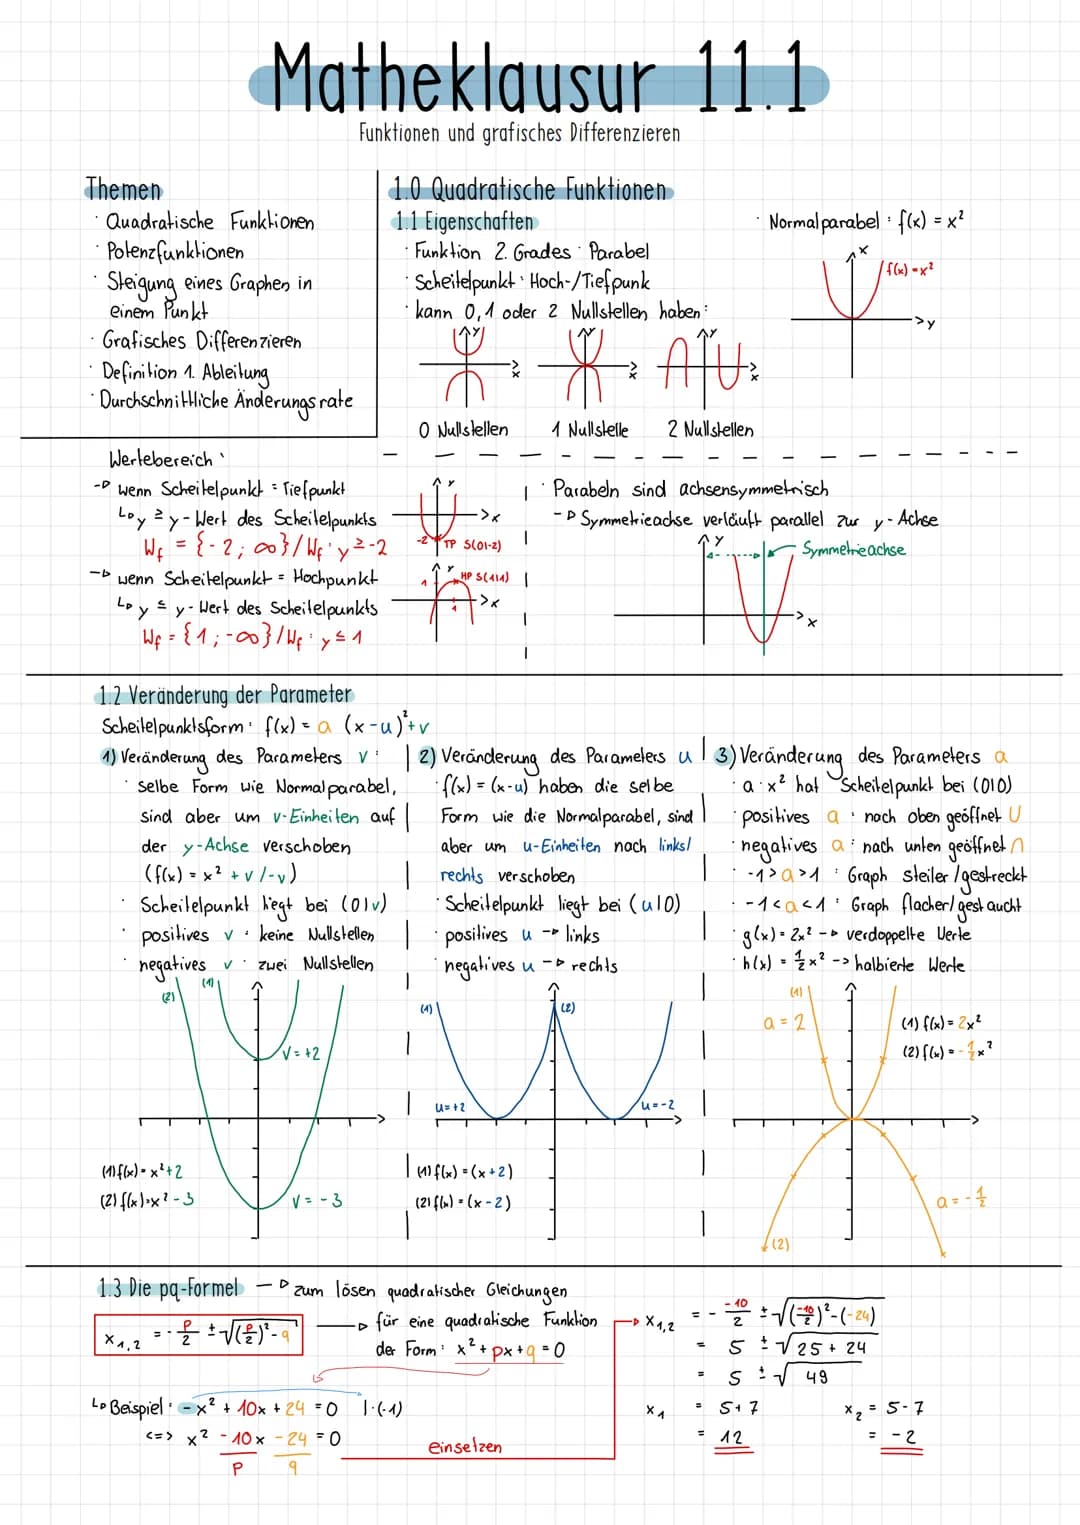 Matheklausur 11.1
Funktionen und grafisches Differenzieren
Themen
· Quadratische Funktionen
· Potenzfunktionen
· Steigung eines Graphen in
einem Punkt
· Grafisches Differenzieren
· Definition 1. Ableitung
· Durchschnittliche Änderungsrate
1.0 Quadratische Funktionen
1.1 Eigenschaften
· Funktion 2. Grades : Parabel
· Scheitelpunkt : Hoch-/Tiefpunk
· kann 0,1 oder 2 Nullstellen haben:
y
x
y
x
y
x
0 Nullstellen
1 Nullstelle
2 Nullstellen
· Normalparabel : f(x) = x²
x
f(x) = x²
y
Wertebereich :
-▷ wenn Scheitelpunkt = Tiefpunkt
↳ y ≥ y-Wert des Scheitelpunkts
Wf = {-2; ∞} / Wf : y ≥ -2
-▷ wenn Scheitelpunkt = Hochpunkt
↳ y ≤ y-Wert des Scheitelpunkts
Wf = {1; -∞} / Wf : y ≤ 1
y
x
-2
TP S(0|-2)
y
HP S(1|1)
1
x
1
· Parabeln sind achsensymmetrisch
-▷ Symmetrieachse verläuft parallel zur y-Achse
y
Symmetrieachse
x
1.2 Veränderung der Parameter
Scheitelpunktsform : f(x) = a (x-u)²+v
1) Veränderung des Parameters v :
· selbe Form wie Normalparabel,
sind aber um v-Einheiten auf
der y-Achse verschoben
(f(x) = x² + v /-v)
· Scheitelpunkt liegt bei (0|v)
· positives v : keine Nullstellen
· negatives v : zwei Nullstellen
(2)
(1)
v = +2
(1) f(x) = x²+2
(2) f(x) = x²-3
v = -3
2) Veränderung des Parameters u
· f(x) = (x-u) haben die selbe
Form wie die Normalparabel, sind
aber um u-Einheiten nach links/
rechts verschoben
· Scheitelpunkt liegt bei (u|0)
· positives u -▷ links
· negatives u -▷ rechts
(1)
(2)
u = +2
u = -2
(1) f(x) = (x+2)
(2) f(x) = (x-2)
3) Veränderung des Parameters a
· a · x² hat Scheitelpunkt bei (0|0)
· positives a : nach oben geöffnet U
· negatives a : nach unten geöffnet ∩
· -1>a>1 : Graph steiler/gestreckt
· -1<a<1 : Graph flacher/gestaucht
· g(x) = 2x² -▷ verdoppelte Werte
· h(x) = ½x² -> halbierte Werte
(1)
a = 2
(1) f(x) = 2x²
(2) f(x) = -½x²
a = -½
(2)
1.3 Die pq-Formel —▷ zum lösen quadratischer Gleichungen
x1,2 = -p/2 ± √((p/2)²-q)
—▷ für eine quadratische Funktion
der Form : x² + px + q = 0
↳ Beispiel : -x² + 10x + 24 = 0 |·(-1)
<=> x² - 10x - 24 = 0
p q
einsetzen
x1,2 = - -10/2 ± √((-10/2)² - (-24))
= 5 ± √25 + 24
= 5 ± √49
x1 = 5+7
= 12
x2 = 5-7
= -2